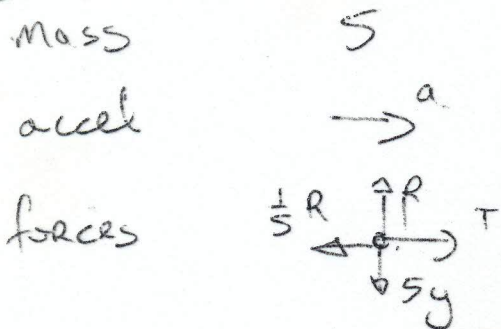 mass 5
accel a
forces 1/5 R R T
5g